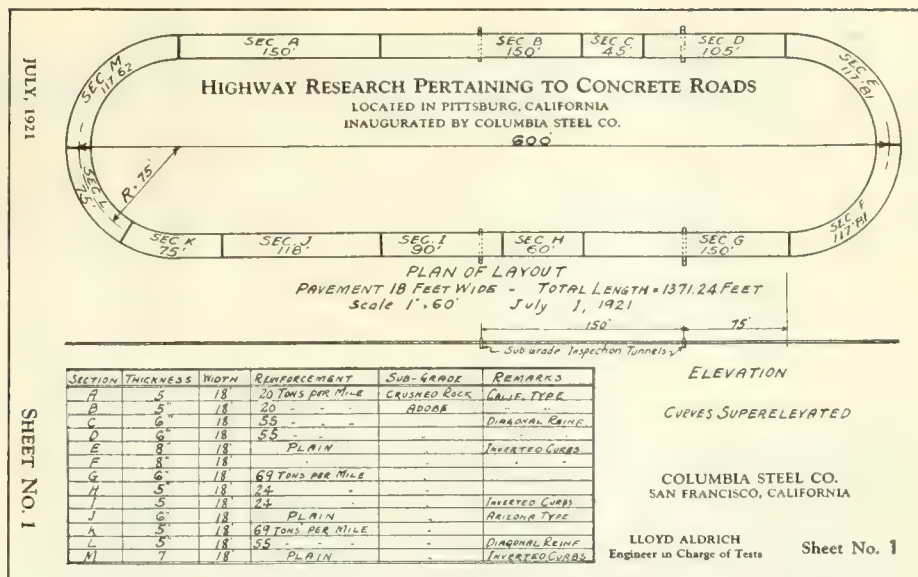 JULY, 1921
SHEET NO. 1
SEC A
150'
SEC B
150'
SEC C
45'
SEC D
105'
SEC. M
117.62
SEC E
117.81
HIGHWAY RESEARCH PERTAINING TO CONCRETE ROADS
LOCATED IN PITTSBURG, CALIFORNIA
INAUGURATED BY COLUMBIA STEEL CO.
600'
R. 75'
SEC L
75'
SEC K
75'
SEC. J
118'
SEC. I
90'
SEC H
60'
SEC G
150'
SEC F
117.81
PLAN OF LAYOUT
PAVEMENT 18 FEET WIDE - TOTAL LENGTH = 1371.24 FEET
Scale 1" = 60' July 1, 1921
150' 75'
Subgrade Inspection Tunnels
SECTION THICKNESS WIDTH REINFORCEMENT SUB-GRADE REMARKS
A 5" 18' 20 TONS PER MILE CRUSHED ROCK CALIF. TYPE
B 5" 18' 20 - - ADOBE " "
C 6" 18 55 - - " DIAGONAL REINF.
D 6" 18 55 - - "
E 8" 18' PLAIN " INVERTED CURBS
F 8" 18' " " " "
G 6" 18' 69 TONS PER MILE "
H 5" 18' 24 - "
I 5 18' 24 - " INVERTED CURBS
J 6" 18' PLAIN " ARIZONA TYPE
K 5" 18' 69 TONS PER MILE - "
L 5" 18' 55 - - - " DIAGONAL REINF
M 7 18' PLAIN " INVERTED CURBS
ELEVATION
CURVES SUPERELEVATED
COLUMBIA STEEL CO.
SAN FRANCISCO, CALIFORNIA
LLOYD ALDRICH
Engineer in Charge of Tests
Sheet No. 1